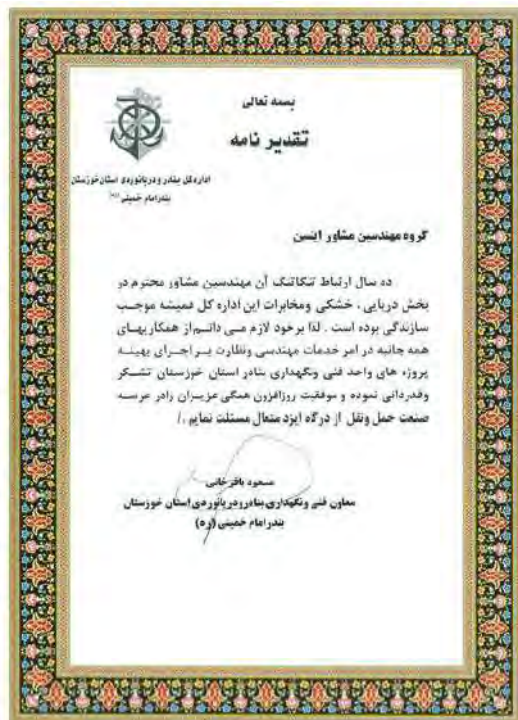 بسمه تعالی
تقدیر نامه
اداره کل بنادر و دریانوردی استان خوزستان
بندر امام خمینی (ره)
گروه مهندسین مشاور اینسن
ده سال ارتباط تنگاتنگ آن مهندسین مشاور محترم در
بخش دریایی ، خشکی ومخابرات این اداره کل همیشه موجب
سازندگی بوده است . لذا برخود لازم می دانم از همکاریهای
همه جانبه در امر خدمات مهندسی ونظارت بر اجرای بهینه
پروژه های واحد فنی ونگهداری بنادر استان خوزستان تشکر
وقدردانی نموده و موفقیت روزافزون همگی عزیزان رادر عرصه
صنعت حمل ونقل از درگاه ایزد متعال مسئلت نمایم ./
مسعود باقرخانی
معاون فنی ونگهداری بنادرودریانوردی استان خوزستان
بندرامام خمینی (ره)